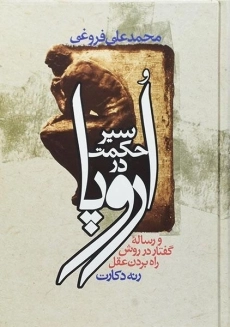 محمدعلی فروغی
سیر
حکمت
در
اروپا
و رسالهٔ
گفتار در روش
راه بردن عقل
رنه دکارت